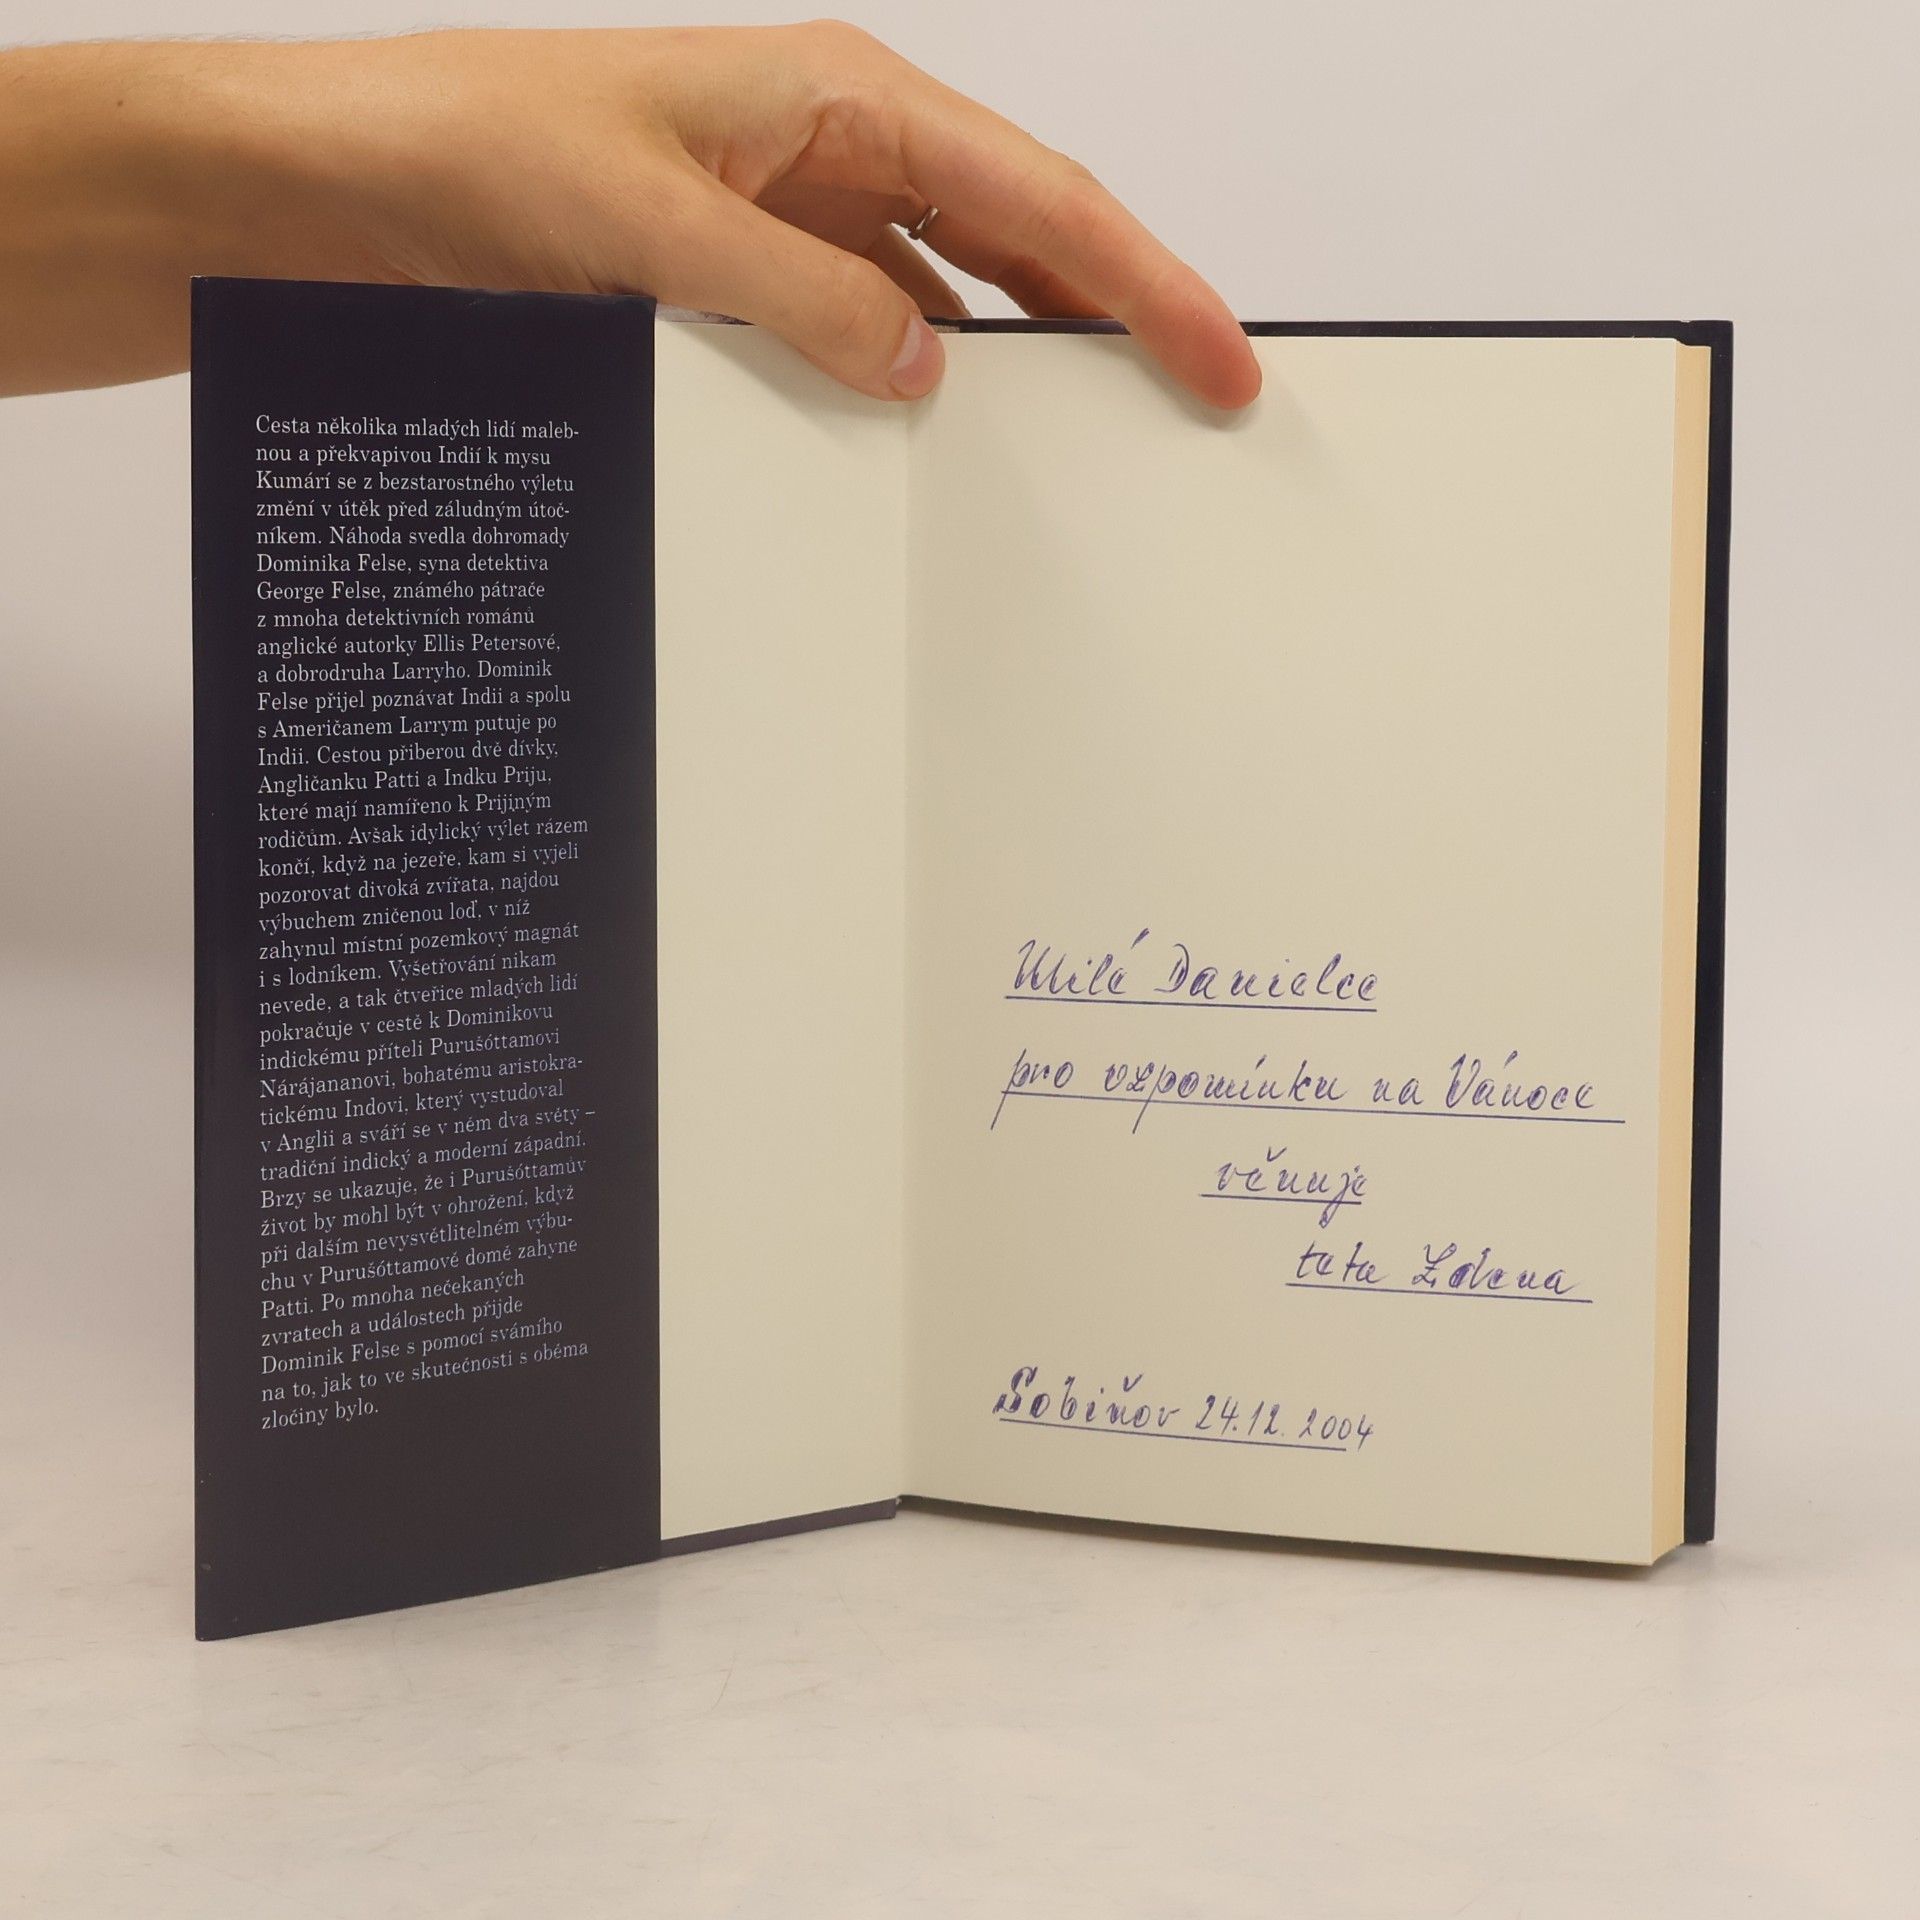 Cesta několika mladých lidí maleb-
nou a překvapivou Indií k mysu
Kumárí se z bezstarostného výletu
změní v útěk před záludným útoč-
níkem. Náhoda svedla dohromady
Dominika Felse, syna detektiva
George Felse, známého pátrače
z mnoha detektivních románů
anglické autorky Ellis Petersové,
a dobrodruha Larryho. Dominik
Felse přijel poznávat Indii a spolu
s Američanem Larrym putuje po
Indii. Cestou přiberou dvě dívky,
Angličanku Patti a Indku Priju,
které mají namířeno k Prijiným
rodičům. Avšak idylický výlet rázem
končí, když na jezeře, kam si vyjeli
pozorovat divoká zvířata, najdou
výbuchem zničenou loď, v níž
zahynul místní pozemkový magnát
i s lodníkem. Vyšetřování nikam
nevede, a tak čtveřice mladých lidí
pokračuje v cestě k Dominikovu
indickému příteli Purušóttamovi
Nárájananovi, bohatému aristokra-
tickému Indovi, který vystudoval
v Anglii a sváří se v něm dva světy –
tradiční indický a moderní západní.
Brzy se ukazuje, že i Purušóttamův
život by mohl být v ohrožení, když
při dalším nevysvětlitelném výbu-
chu v Purušóttamově domě zahyne
Patti. Po mnoha nečekaných
zvratech a událostech přijde
Dominik Felse s pomocí svámího
na to, jak to ve skutečnosti s oběma
zločiny bylo.
Milé Danielce
pro vzpomínku na Vánoce
věnuje
teta Zdena
Sobiňov 24.12. 2004